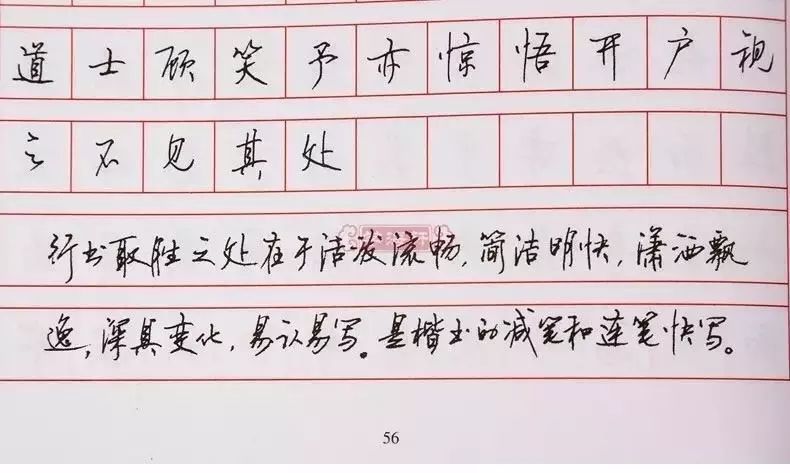 道士顾笑予亦惊悟开户视
之不见其处
行书取胜之处在于活发流畅，简洁明快，潇洒飘
逸，深其变化，易认易写。是楷书的减笔和连笔快写。
56